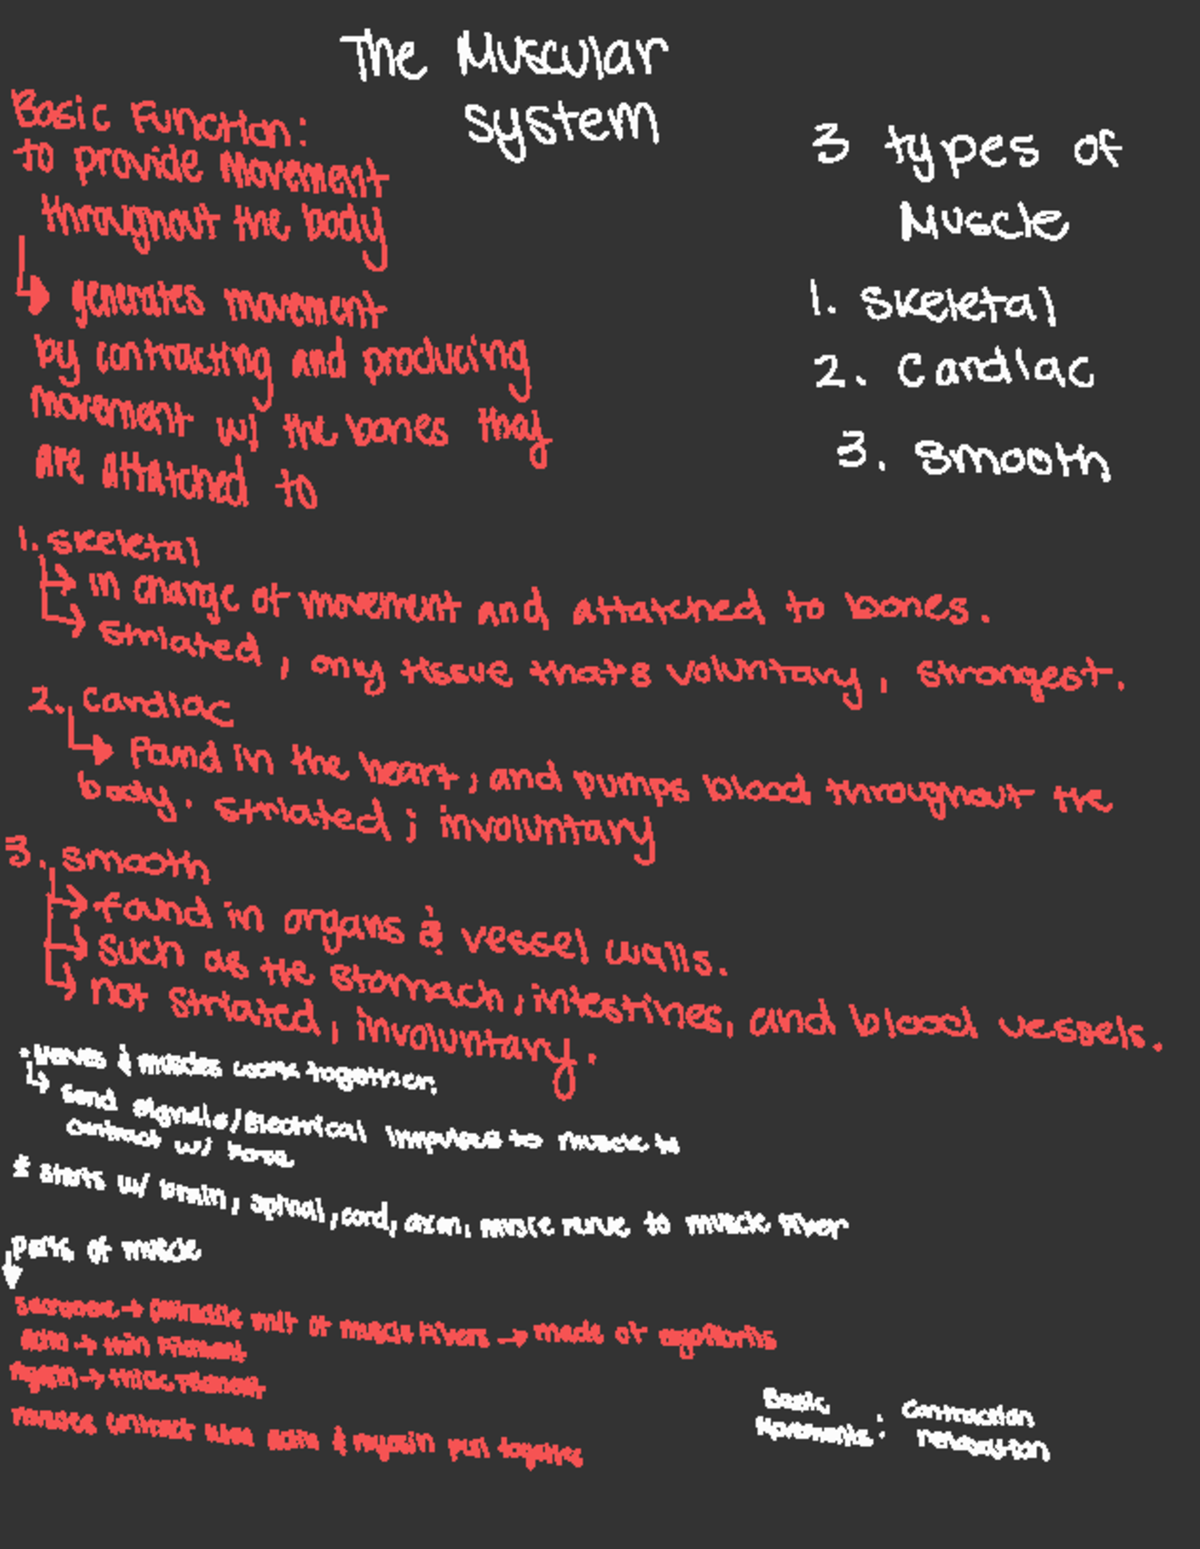 The Muscular
system
Basic Function:
to provide Movement
throughout the body
↳ generates movement
by contracting and producing
movement w/ the bones they
are attatched to
3 types of
Muscle
1. Skeletal
2. Cardiac
3. Smooth
1. Skeletal
→ in charge of movement and attatched to bones.
→ Striated, only tissue that's voluntary, strongest.
2. Cardiac
→ Found in the heart, and pumps blood throughout the
body. Striated; involuntary
3. Smooth
→ found in organs & vessel walls.
→ such as the stomach, intestines, and blood vessels.
→ not striated, involuntary.
• Nerves & muscles work together.
↳ send signals/Electrical impulses to muscle to
contract w/ force
* starts w/ brain, spinal, cord, axon, nerve to muscle
parts of muscle
→ unit of muscle → made of
actin → thin Filament
Myosin → thick Filament
contract actin & myosin pull together
Basic
Movements:
Contraction